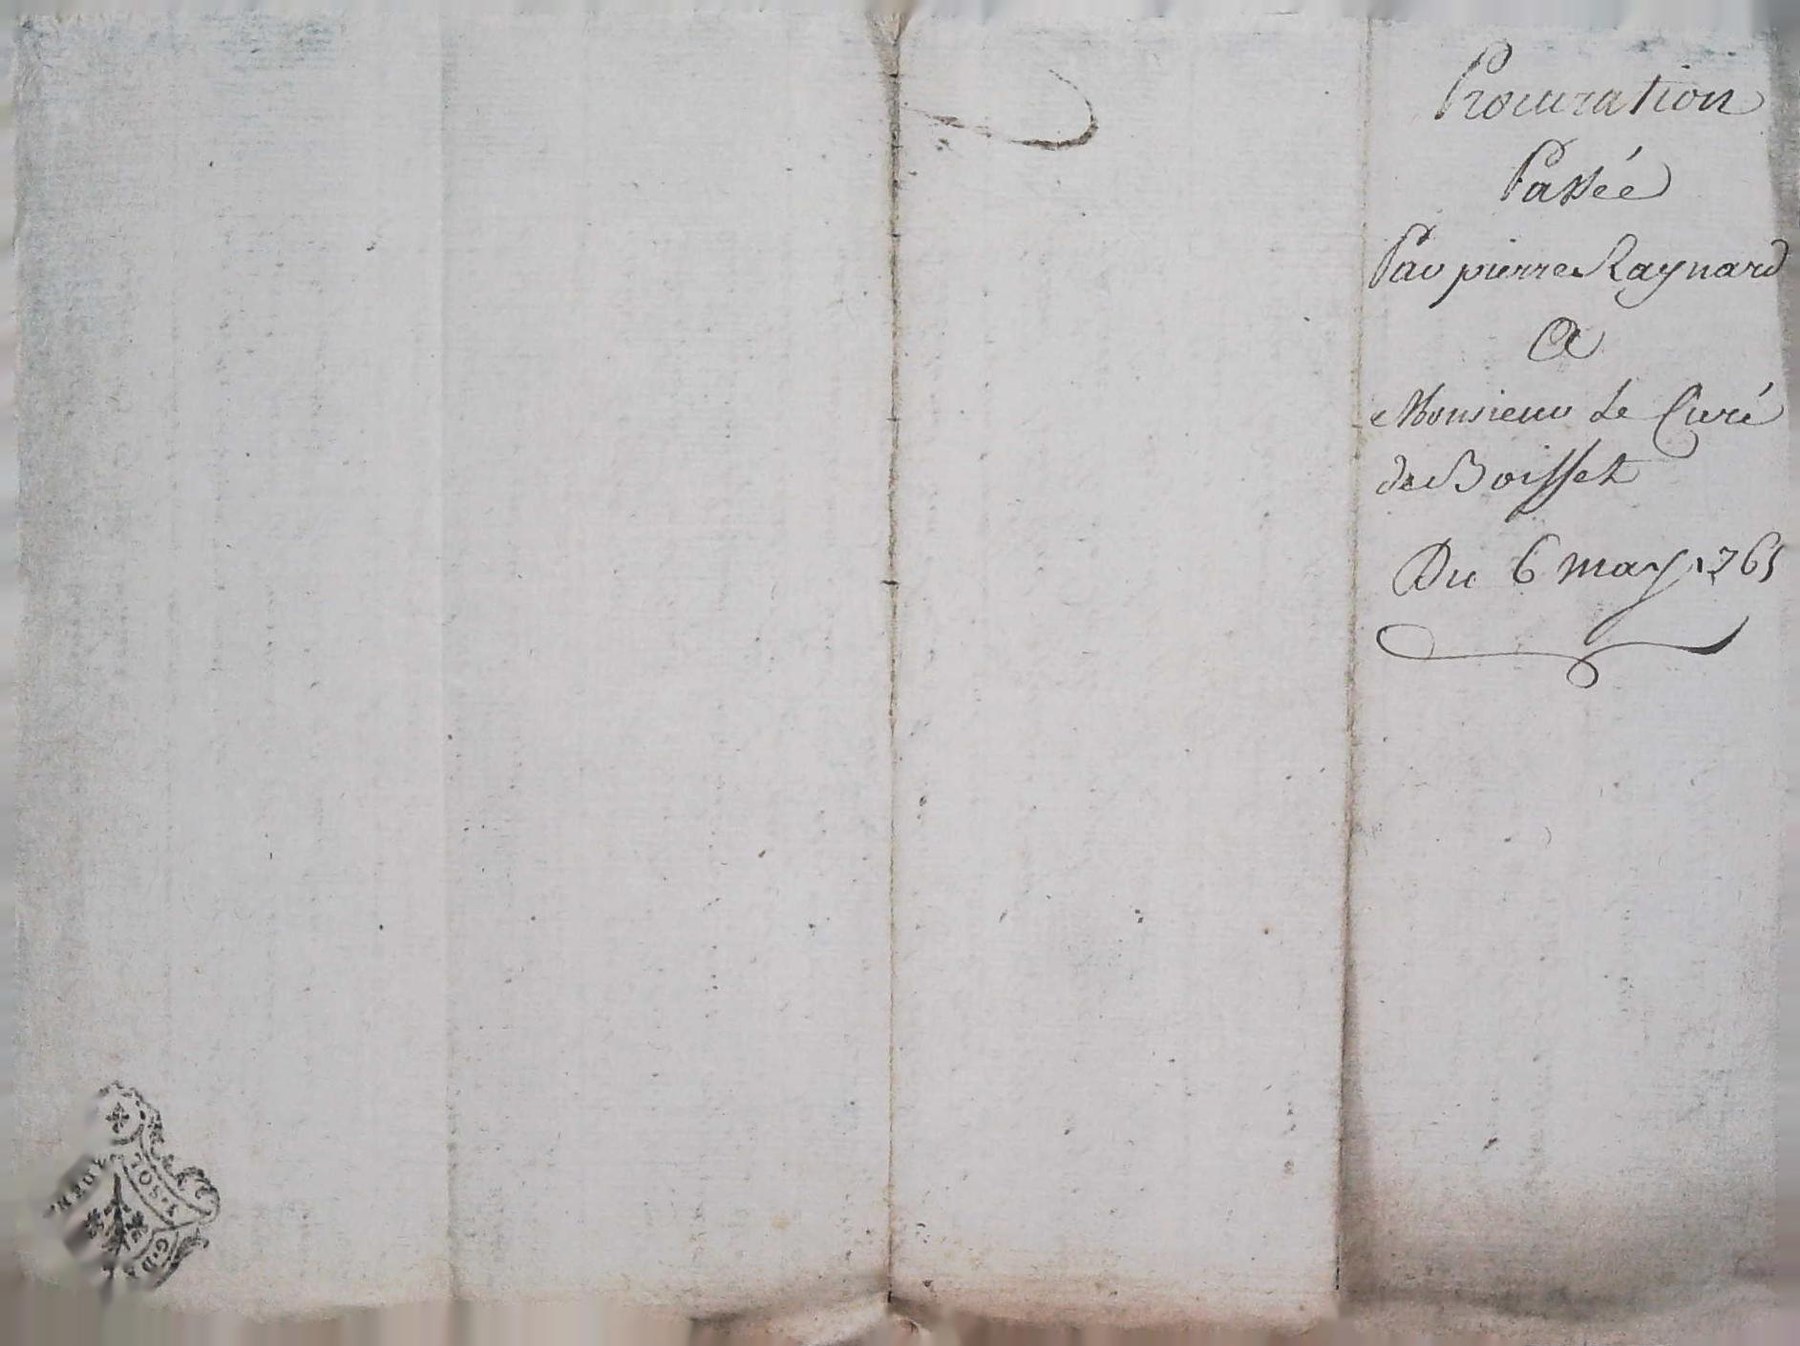 Procuration
Passée
Par pierre Raynard
A
Monsieur Le Curé
de Boisset
Du 6 may 1765